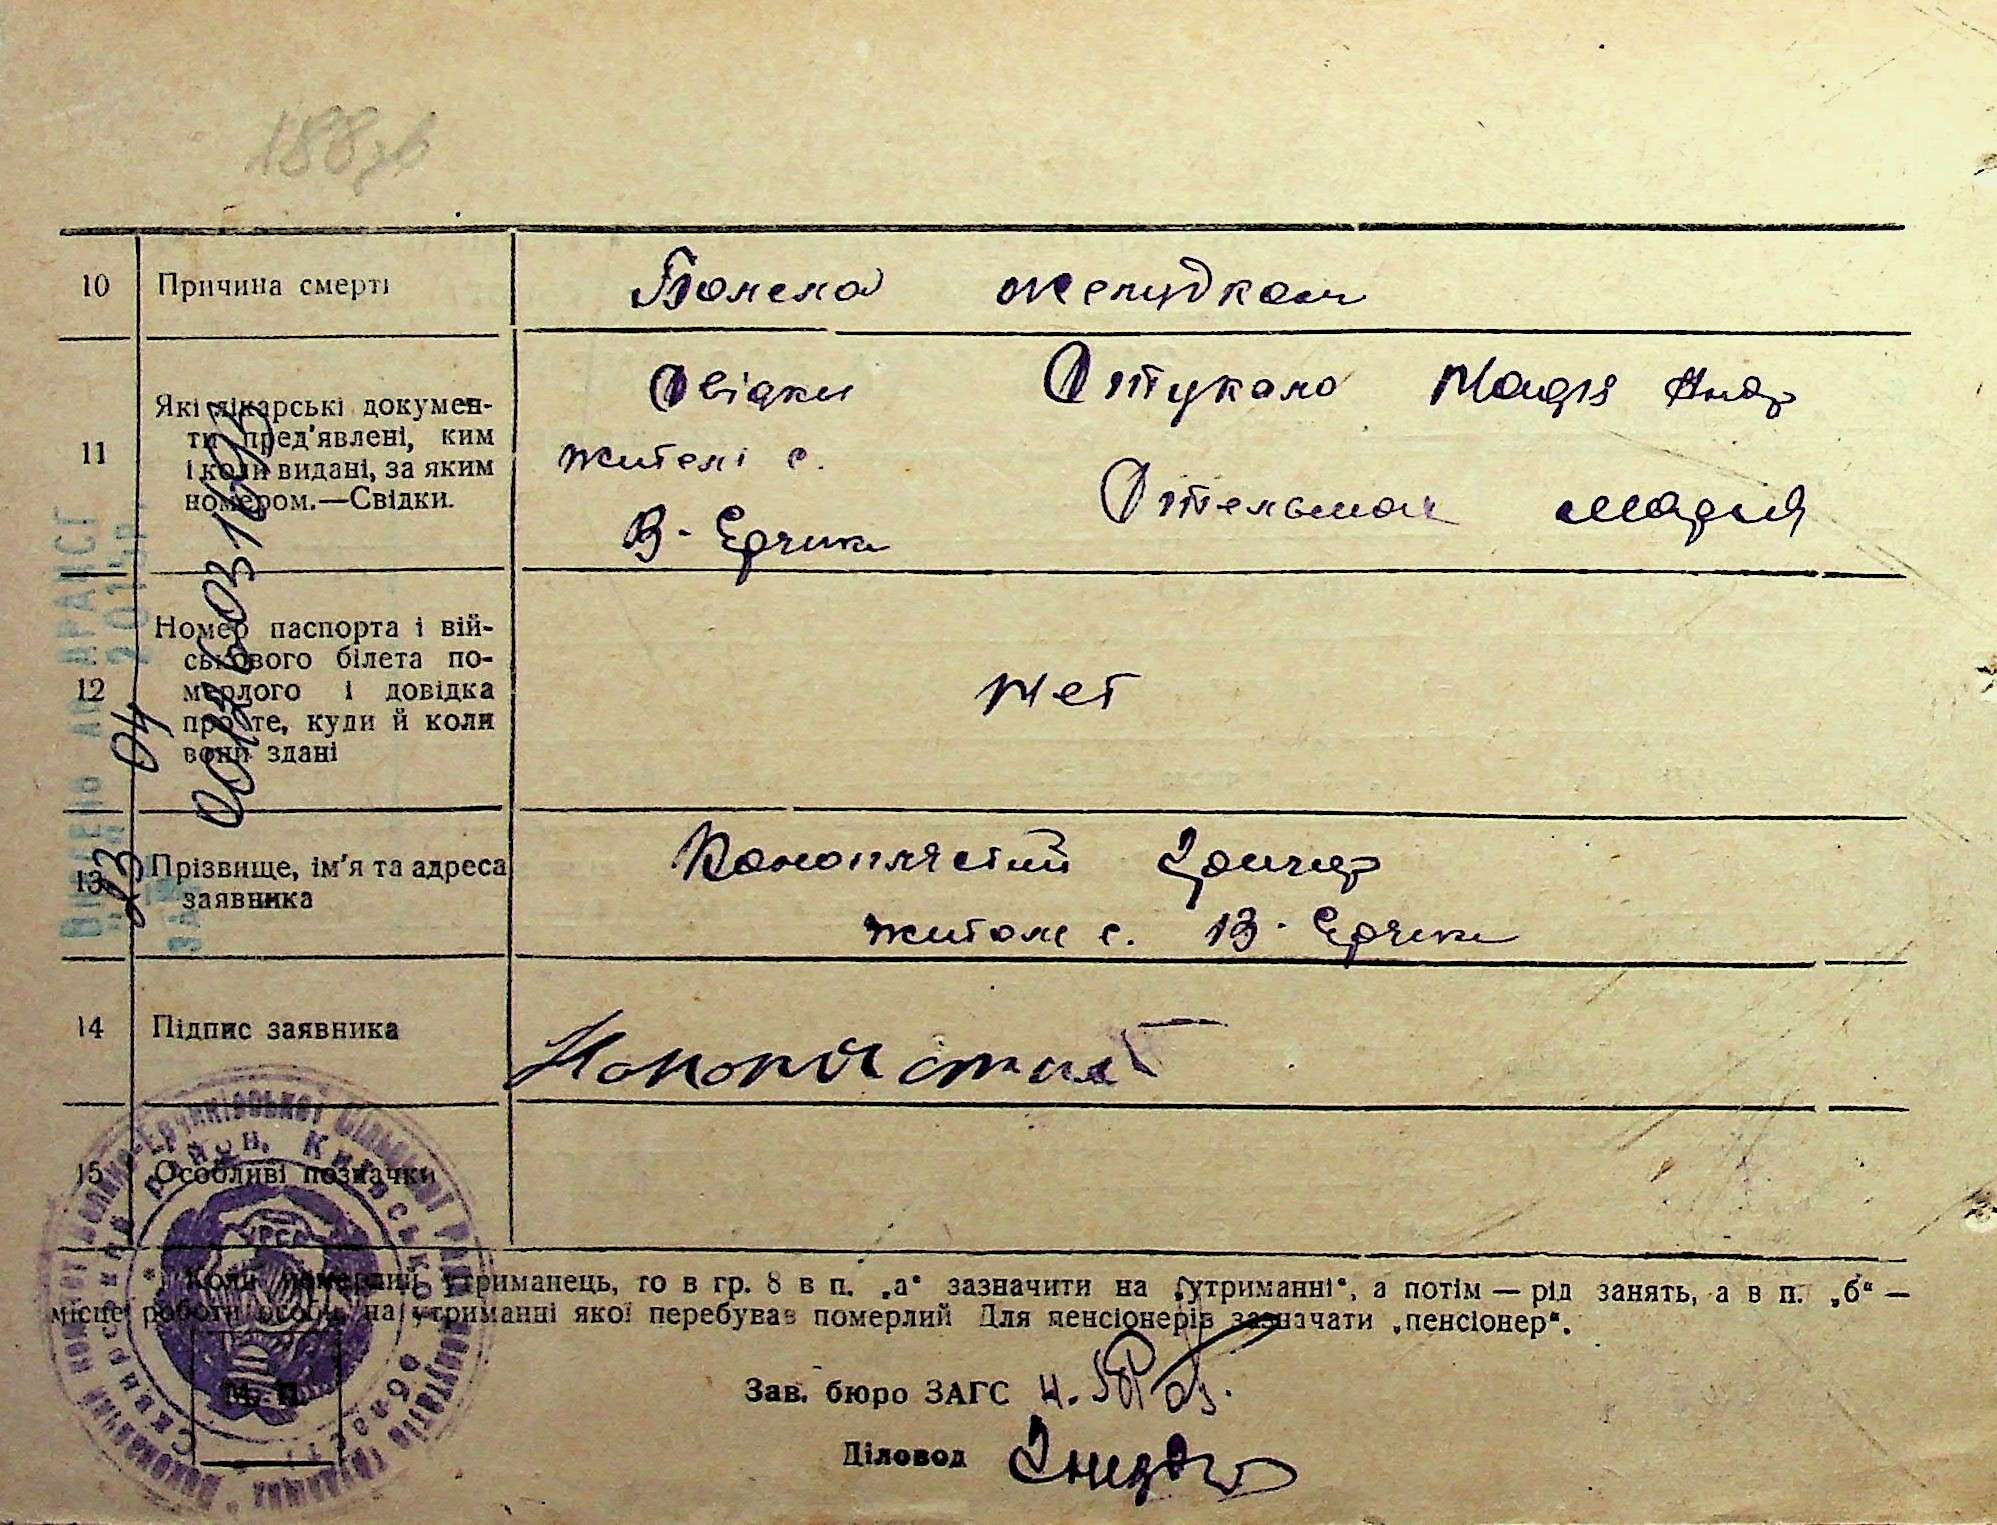 188зв
10 Причина смерті Болела желудком
11 Які лікарські докумен-
ти пред'явлені, ким
і коли видані, за яким
номером.—Свідки.
Свідки Стукало Марія Андр
жителі с.
Стельмах Марія
В-Ерчики
12 Номер паспорта і вій-
ськового білета по-
мерлого і довідка
про те, куди й коли
вони здані
нет
13 Прізвище, ім'я та адреса
заявника
Конопластий
жител с. В-Ерчики
14 Підпис заявника Конопластий
15 Особливі позначки
Коли померлий утриманець, то в гр. 8 в п. „а“ зазначити на „утриманні“, а потім — рід занять, а в п. „б“ —
місце роботи особи, на утриманні якої перебував померлий Для пенсіонерів зазначати „пенсіонер“.
Зав. бюро ЗАГС
Діловод
М. П.
УРСР
Сквирський район, Київської області
04
13